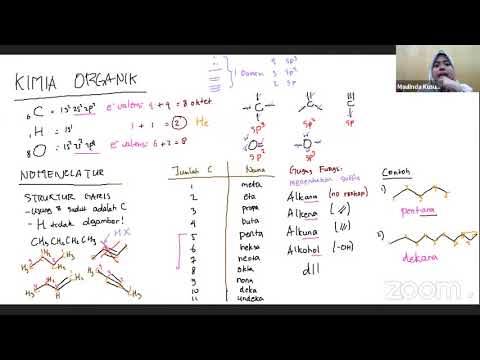 KIMIA ORGANIK
₆C = 1s² 2s² 2p² e⁻ valensi 4 + 4 = 8 oktet
₁H = 1s¹ 1 + 1 = 2 He
₈O = 1s² 2s² 2p⁴ e⁻ valensi 6 + 2 = 8
1 Domen
4 sp³
3 sp²
2 sp
C C C
sp³ sp² sp
O O
sp² sp³
NOMENKLATUR
STRUKTUR GARIS
- ujung & sudut adalah C
- H tidak digambar!
CH₃CH₂CH₂CH₃
HX
Jumlah C Nama
1 meta
2 eta
3 propa
4 buta
5 penta
6 heksa
7 hepta
8 okta
9 nona
10 deka
11 undeka
Gugus Fungsi
menentukan suffix
Alkana (no rangkap)
Alkena (//)
Alkuna (///)
Alkohol (-OH)
dll
Contoh
1)
pentana
2)
dekana
Maulinda Kusu...
zoom